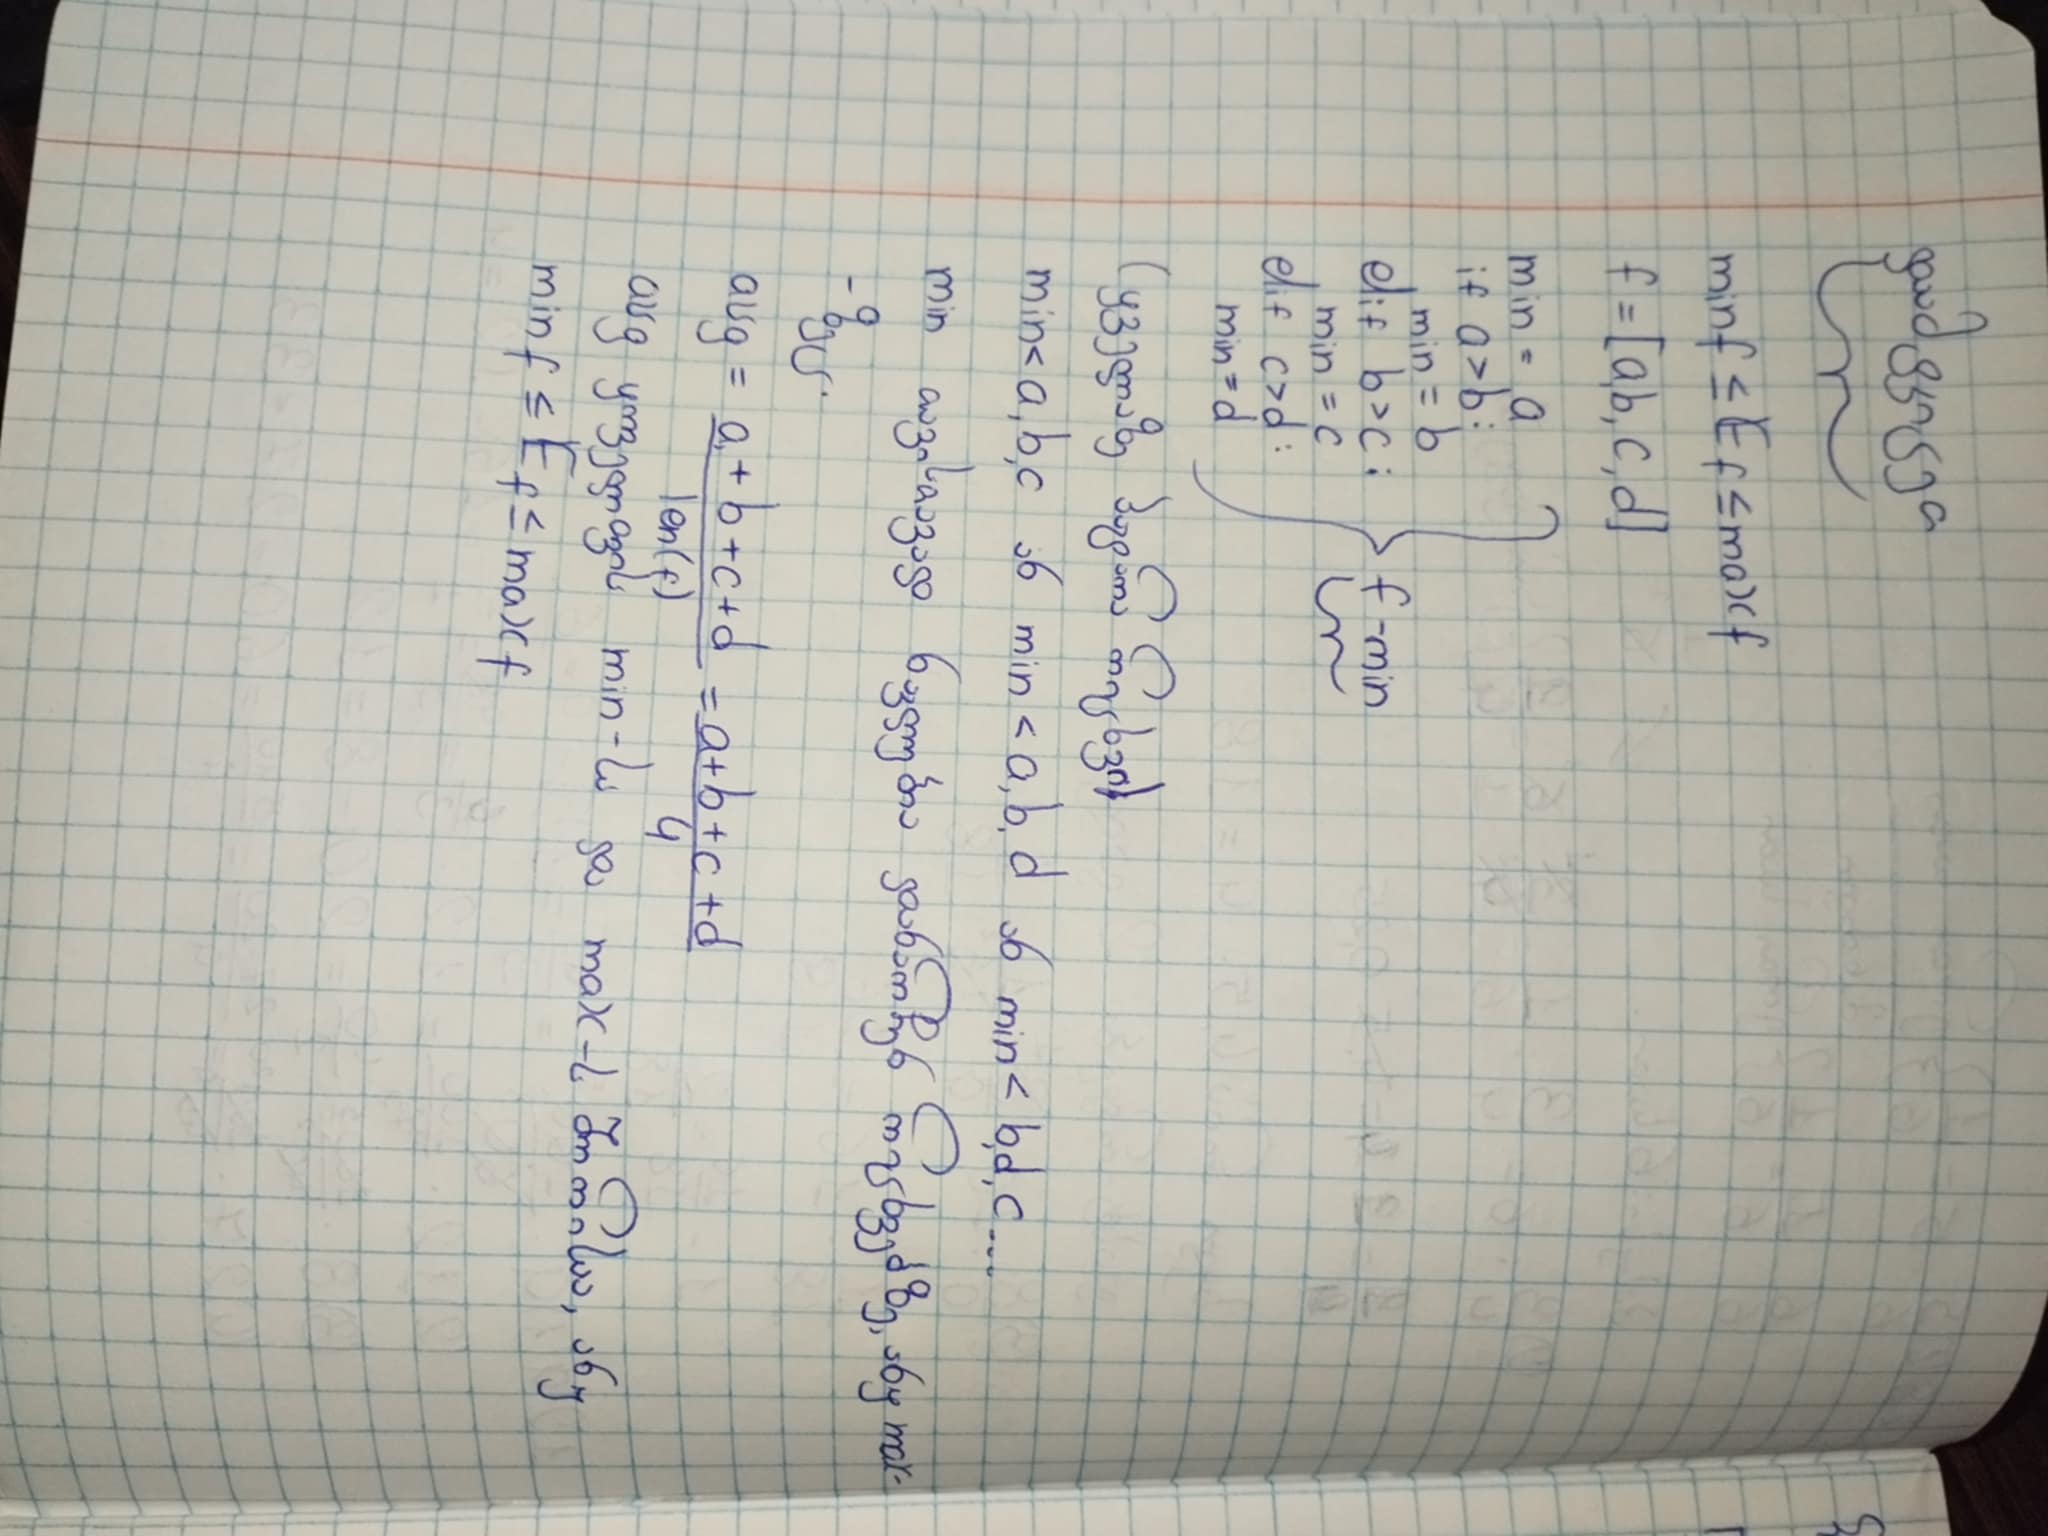 დამტკიცება
min f ≤ E f ≤ max f
f = [a, b, c, d]
min = a
if a > b:
min = b
elif b > c:
min = c
elif c > d:
min = d
f-min
(ყველაზე პატარა რიცხვი)
min < a, b, c ან min < a, b, d ან min < b, d, c ....
min
ნებისმიერ რიცხვებზე, ანუ max-
-ზეც.
avg = a + b + c + d / len(f) = a + b + c + d / 4
avg ყოველთვის min-სა და max-ს შორისაა, ანუ
min f ≤ E f ≤ max f